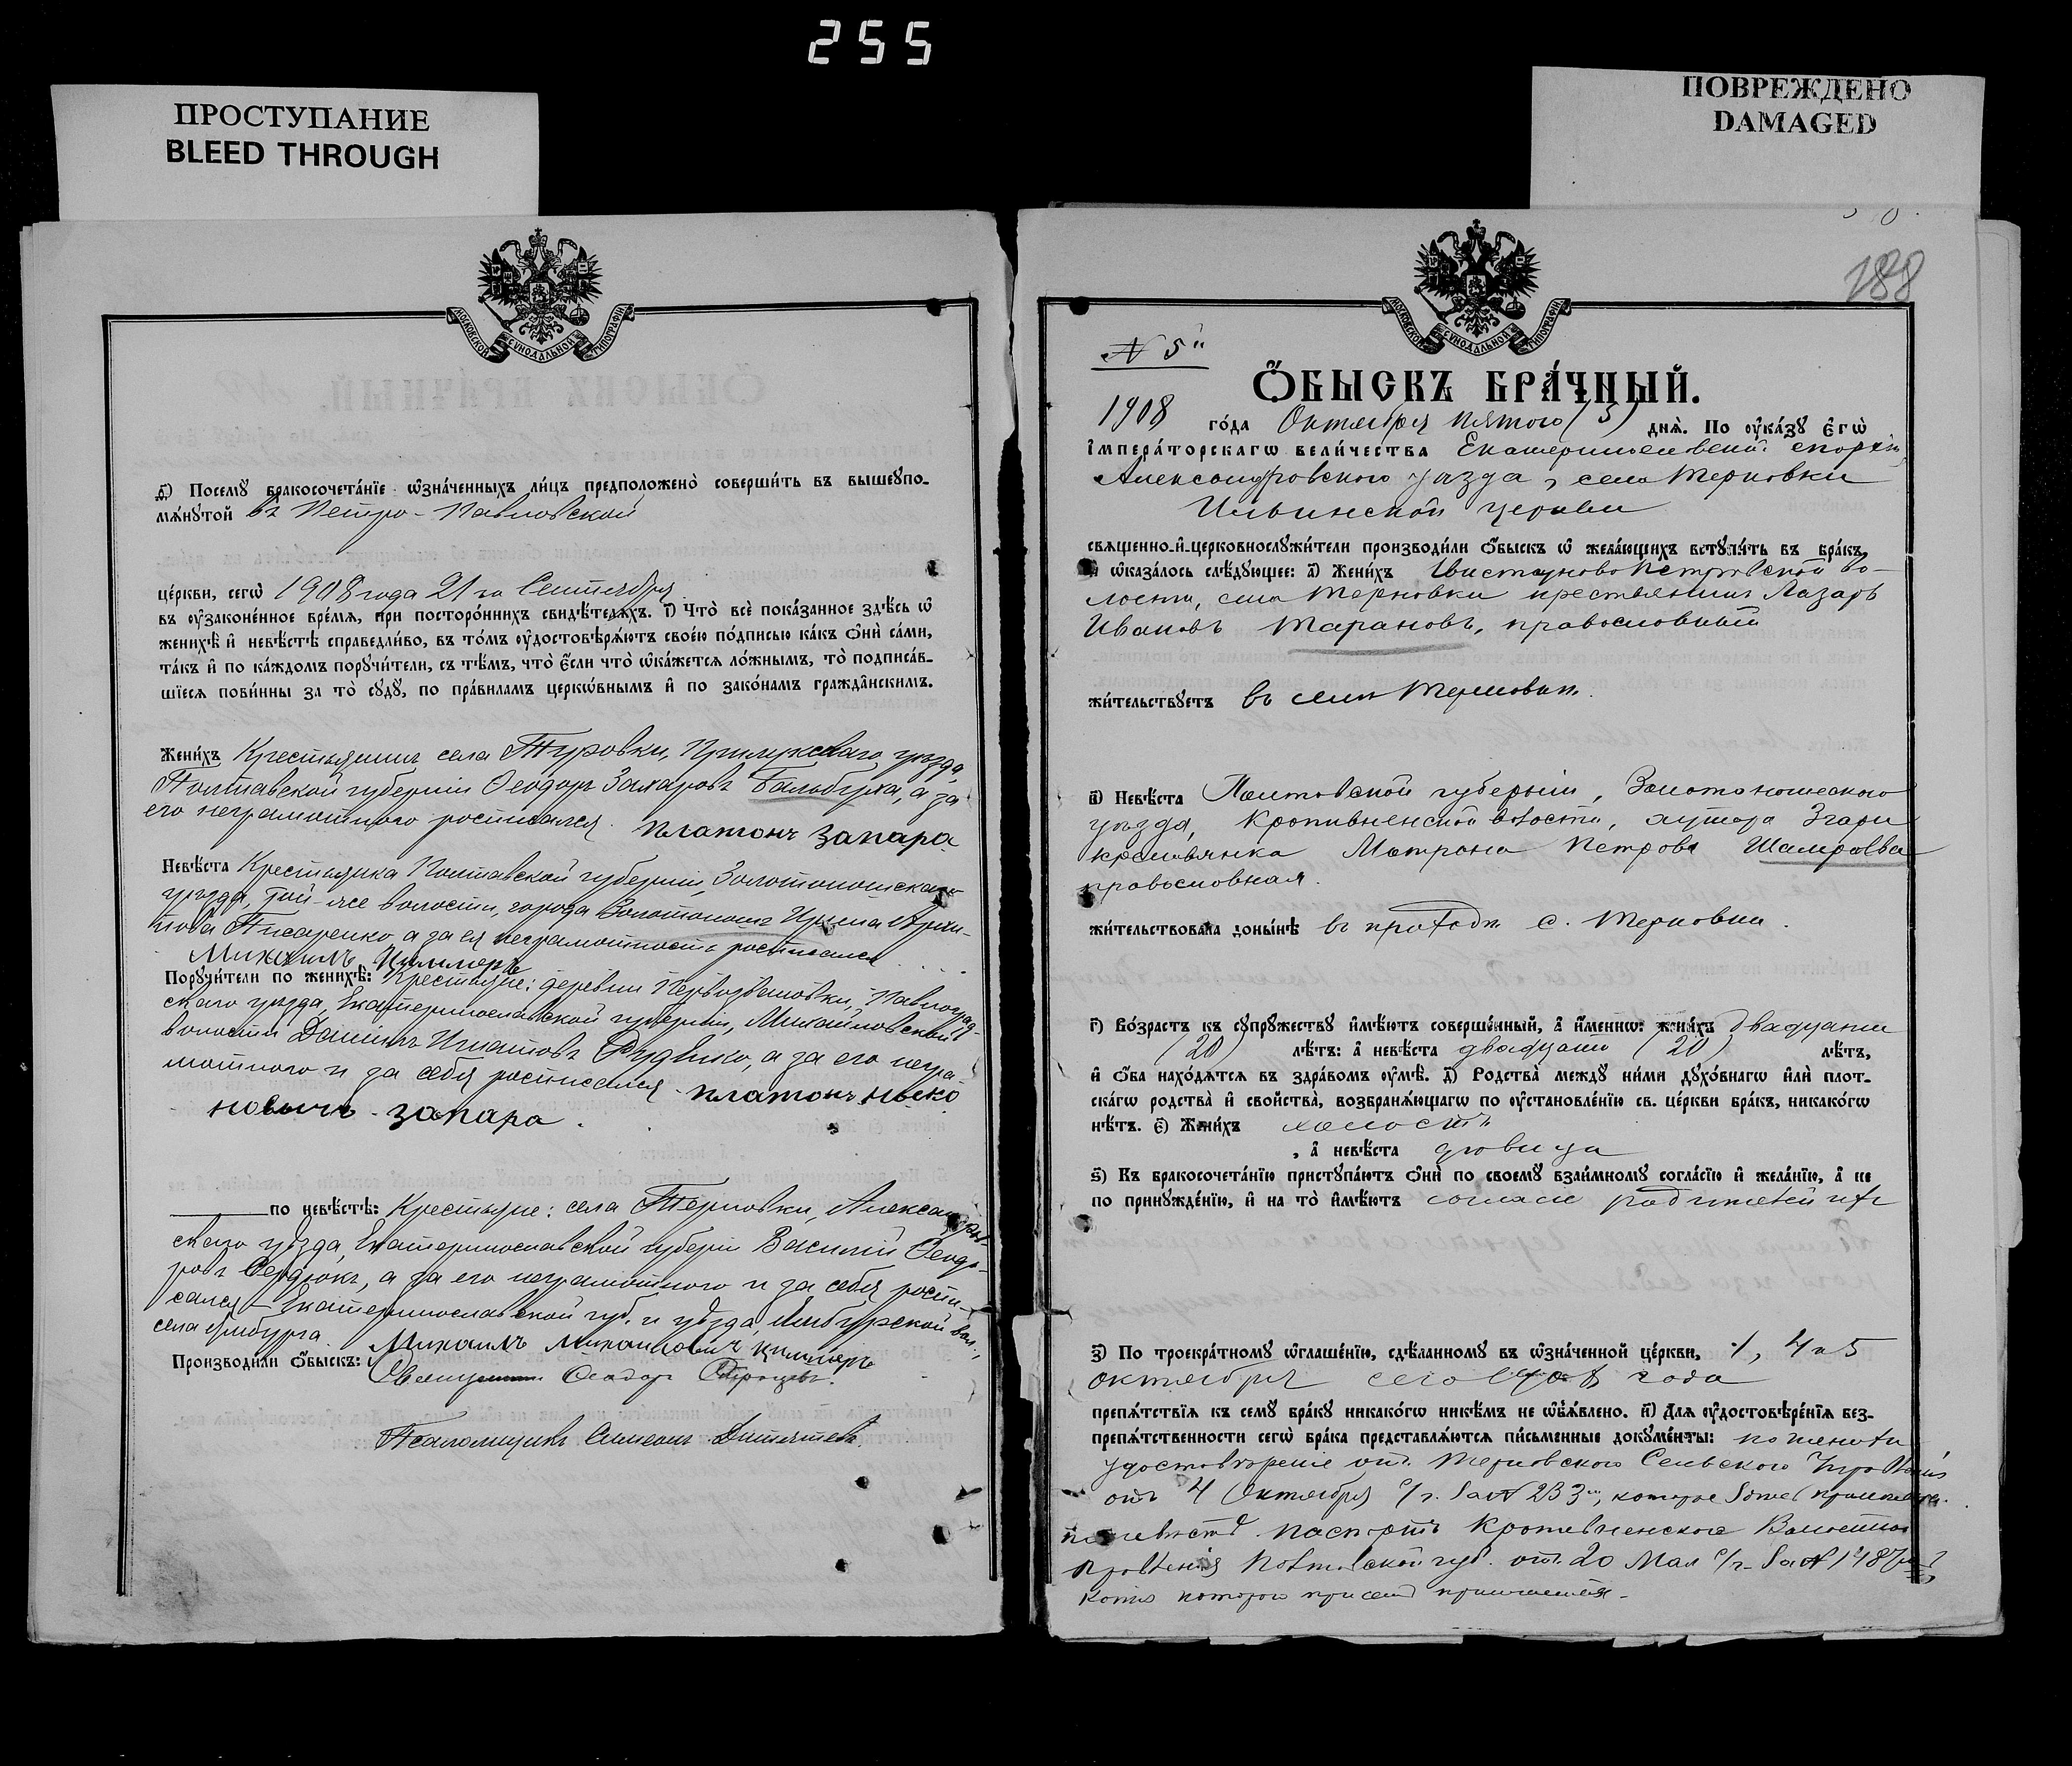 255
ПРОСТУПАНИЕ
BLEED THROUGH
ПОВРЕЖДЕНО
DAMAGED
МОСКОВСКОЙ СѴНОДАЛЬНОЙ ТИПОГРАФІИ
д҃і) Посемꙋ бракосочета́нїе ѡ҆зна́ченныхъ ли́цъ предположено̀ соверши́ть въ вышеꙋпо-
мѧ́нꙋтой въ Петро-Павловской
це́ркви, сегѡ̀ 1908 года 21 го Сентября
въ ᲂу҆зако́ненное вре́мѧ, при посторо́ннихъ свидѣ́телѧхъ. і҃) Что̀ всѐ пока́занное здѣ́сь ѡ҆
женихѣ̀ и҆ невѣ́стѣ справедли́во, въ то́мъ ᲂу҆достовѣрѧ́ютъ свое́ю по́дписью ка́къ ѻ҆нѝ са́ми,
та́къ и҆ по ка́ждомъ порꙋчи́тели, съ тѣ́мъ, что̀ є҆́сли что̀ ѡ҆ка́жетсѧ ло́жнымъ, то̀ подписа́в-
шїесѧ пови́нны за то̀ сꙋдꙋ̀, по пра́виламъ церкѡ́внымъ и҆ по зако́намъ гражда̑нскимъ.
Жени́хъ Крестьянинъ села Туровки, Прилукскаго уѣзда,
Полтавской губерніи Ѳеодоръ Захаровъ Бальбуха, а за
его неграмотнаго росписался Платонъ Запара
Невѣ́ста Крестьянка Полтавской губерніи, Золотоношскаго
уѣзда, той-же волости, города Золотоноши Ирина Архи-
пова Писаренко а за ея неграмотность росписался
Михаилъ Циммеръ
Порꙋчи́тели по женихѣ̀: Крестьяне: деревни Первозвановки, Павлоград-
скаго уѣзда, Екатеринославской губерніи, Михайловской
волости Даніилъ Игнатовъ Рудько, а за его негра-
мотнаго и за себя росписался Платонъ
Запара
по невѣ́стѣ: Крестьяне: села Терновки, Александров-
скаго уѣзда, Екатеринославской губерніи Василій Ѳеодо-
ровъ Сердюкъ, а за его неграмотнаго и за себя роспи-
сался Екатеринославской губ. и уѣзда, Ямбургской вол.,
села Ямбурга Михаилъ Михаиловичъ Циммеръ
Производи́ли ѻ҆́быскъ: Священникъ Ѳеодоръ
Псаломщикъ Симеонъ
188
N 5й
Ѻ҆́БЫСКЪ БРА́ЧНЫЙ.
1908 го́да Октября пятого (5) днѧ̀. По ᲂу҆ка́зꙋ є҆гѡ̀
і҆мпера́торскагѡ вели́чества Екатеринославской епархіи,
Александровского уѣзда, села Терновки
Ильинской церкви
свѧще́нно-и҆-церковнослꙋжи́тели производи́ли ѻ҆́быскъ ѡ҆ жела́ющихъ встꙋпи́ть въ бра́къ,
и҆ ѡ҆каза́лось слѣ́дꙋющее: а҃) Жени́хъ Вистауново Петровской во-
лости, села Терновки крестьянинъ Лазарь
Ивановъ Тарановъ, православный
жи́тельствꙋетъ въ селѣ Терновкѣ.
в҃) Невѣ́ста Полтавской губерніи, Золотоношского
уѣзда, Кропивненской волости, хутора Згари
крестьянка Матрона Петрова
православная.
жи́тельствовала доны́нѣ въ приходѣ с. Терновки.
г҃) Во́зрастъ къ сꙋпрꙋ́жествꙋ и҆мѣ́ютъ соверше́нный, а҆ и҆́меннѡ: жени́хъ двадцати
(20) лѣ́тъ: а҆ невѣ́ста двадцати (20) лѣ́тъ,
и҆ ѻ҆́ба нахо́дѧтсѧ въ здра́вомъ ᲂу҆мѣ̀. д҃) Родства̀ междꙋ̀ ни́ми дꙋхо́внагѡ и҆лѝ плот-
ска́гѡ родства̀ и҆ свойства̀, возбранѧ́ющагѡ по ᲂу҆становле́нїю св. це́ркви бра́къ, никако́гѡ
нѣ́тъ. є҃) Жени́хъ холостъ
, а҆ невѣ́ста дѣвица
ѕ҃) Къ бракосочета́нїю пристꙋпа́ютъ ѻ҆нѝ по своемꙋ̀ взаи́мномꙋ согла́сїю и҆ жела́нїю, а҆ не
по принꙋжде́нїю, и҆ на то̀ и҆мѣ́ютъ согласіе родителей ихъ
з҃) По троекра́тномꙋ ѡ҆глаше́нїю, сдѣ́ланномꙋ въ ѡ҆зна́ченной це́ркви, 1, 4 и 5
октября сего 1908 года
препѧ́тствїѧ къ семꙋ̀ бра́кꙋ никако́гѡ никѣ́мъ не ѡ҆б̾ѧ́влено. и҃) Длѧ ᲂу҆достовѣре́нїѧ без-
препѧ́тственности сегѡ̀ бра́ка представлѧ́ютсѧ пи́сьменные докꙋме́нты: по женихѣ
удостовѣреніе отъ Терновского Сельского Правленія
отъ 4 Октября с/г. за № 233м, которое
по невѣстѣ паспортъ Кропивненского Волостного
Правленія Полтавской губ. отъ 20 Мая с/г. за № 1487м
копія которого при семъ прилагается.